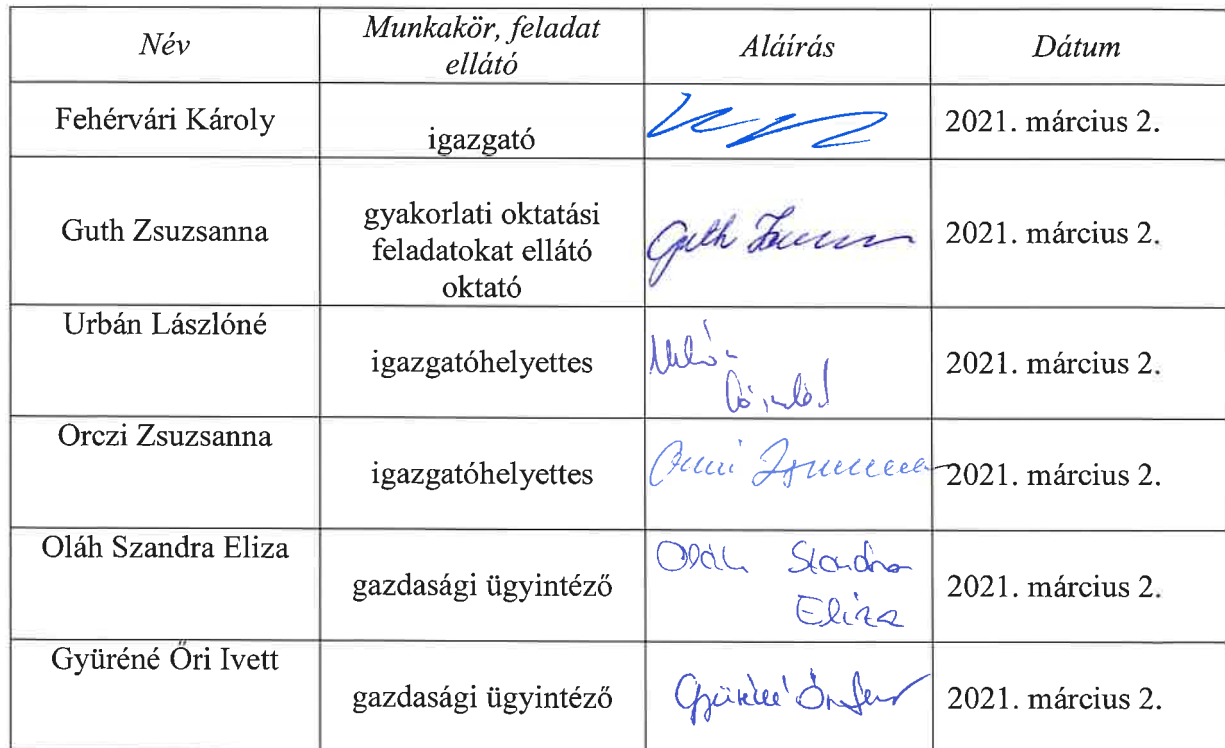 Név
Munkakör, feladat
ellátó
Aláírás
Dátum
Fehérvári Károly
igazgató
2021. március 2.
Guth Zsuzsanna
gyakorlati oktatási
feladatokat ellátó
oktató
Guth
2021. március 2.
Urbán Lászlóné
igazgatóhelyettes
2021. március 2.
Orczi Zsuzsanna
igazgatóhelyettes
2021. március 2.
Oláh Szandra Eliza
gazdasági ügyintéző
Oláh Szandra
Eliza
2021. március 2.
Gyüréné Őri Ivett
gazdasági ügyintéző
Gyüréné Őri
2021. március 2.